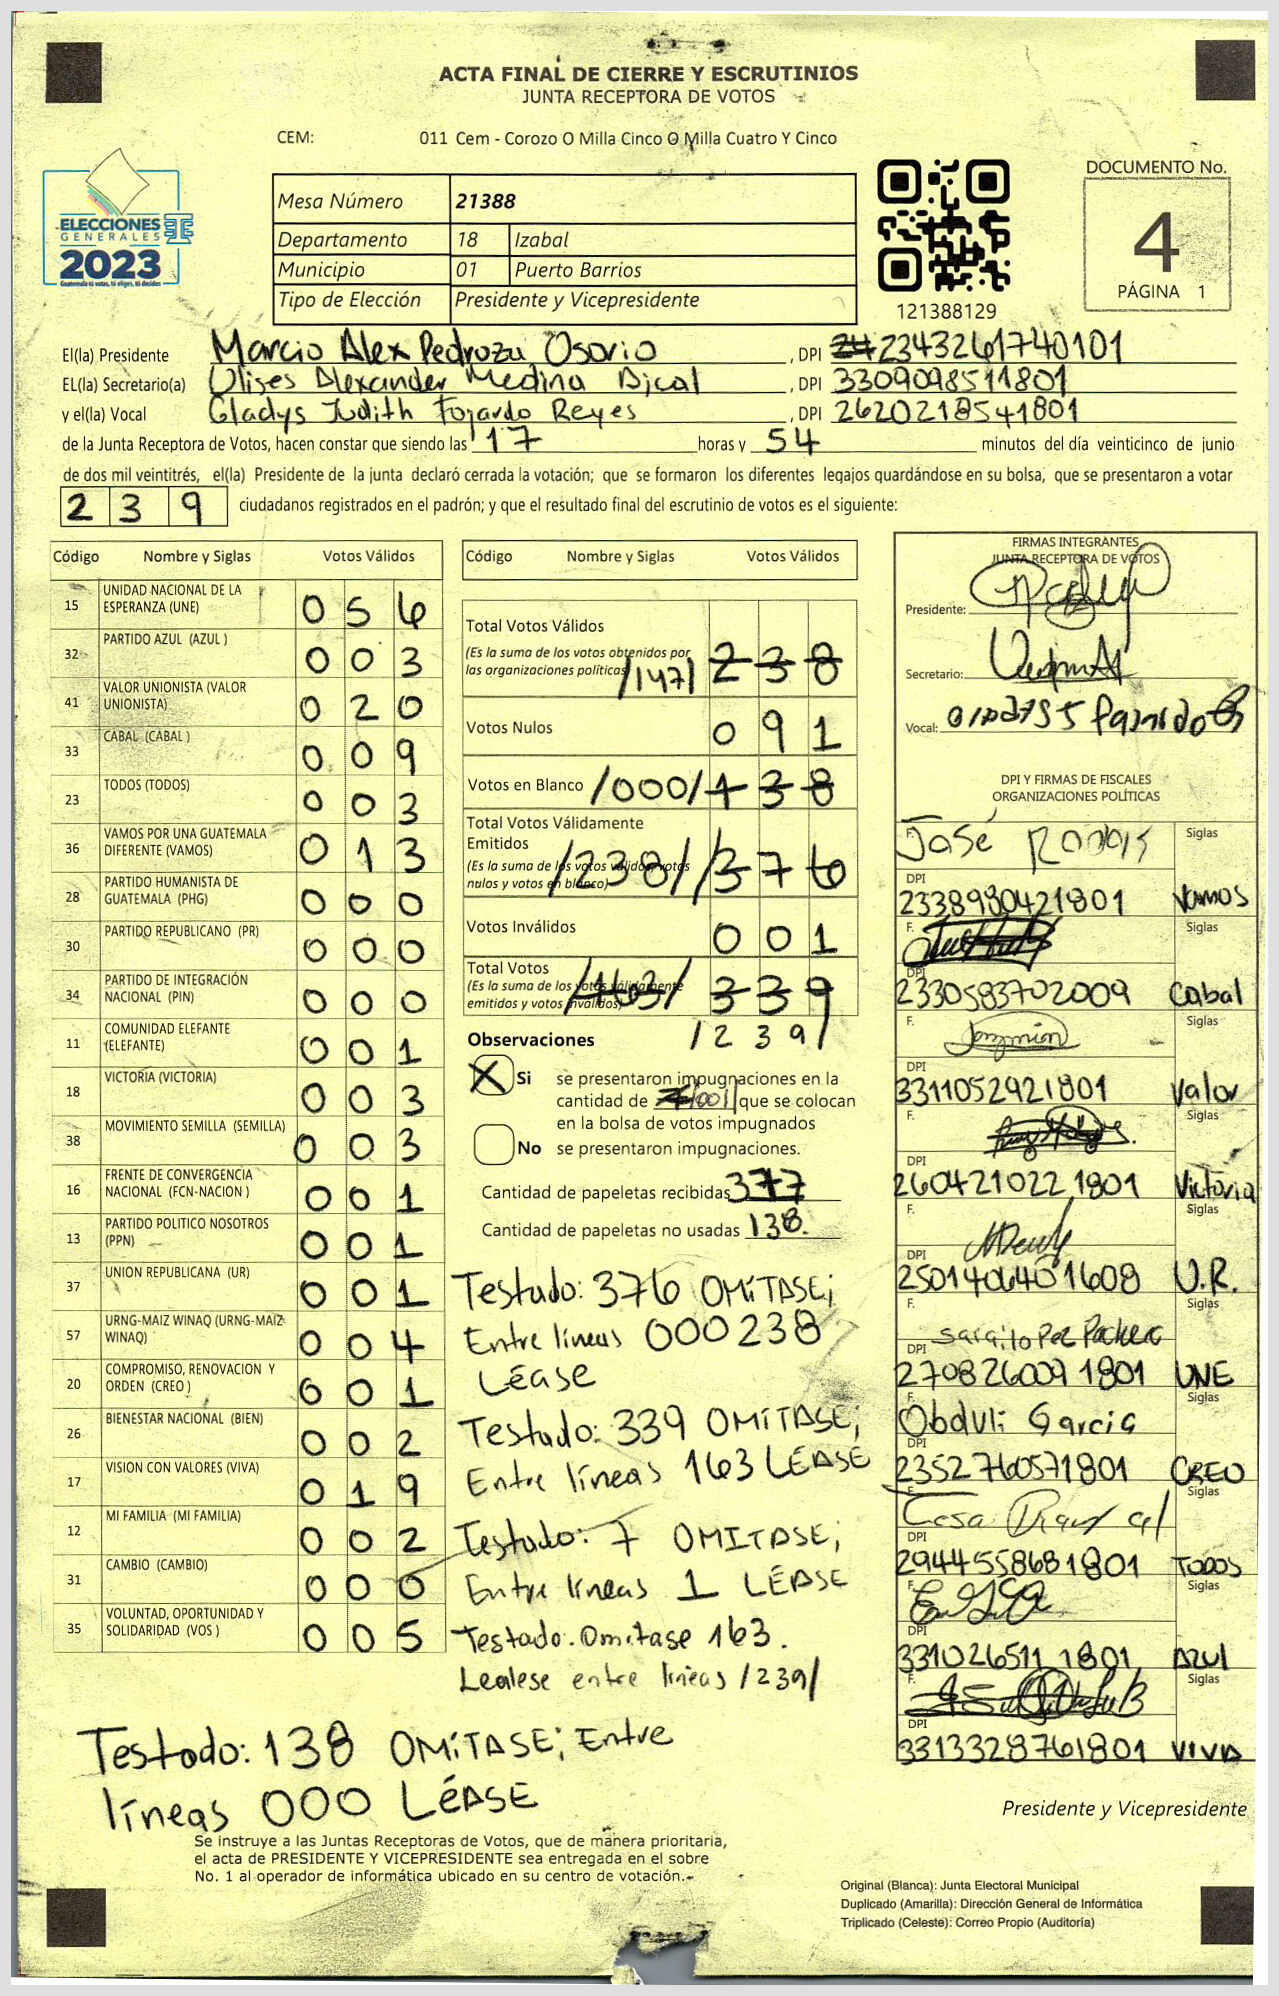 ACTA FINAL DE CIERRE Y ESCRUTINIOS
JUNTA RECEPTORA DE VOTOS
CEM: 011 Cem - Corozo O Milla Cinco O Milla Cuatro Y Cinco
ELECCIONES
GENERALES
2023
Guatemala tú votas, tú eliges, tú decides
Mesa Número 21388
Departamento 18 Izabal
Municipio 01 Puerto Barrios
Tipo de Elección Presidente y Vicepresidente
121388129
DOCUMENTO No.
4
PÁGINA 1
El(la) Presidente Marcio Alex Pedrozu Osorio, DPI 2343261740101
EL(la) Secretario(a) Ulises Alexander Medina Bical, DPI 3309098511801
y el(la) Vocal Gladys Judith Fajardo Reyes, DPI 2620218541801
de la Junta Receptora de Votos, hacen constar que siendo las 17 horas y 54 minutos del día veinticinco de junio
de dos mil veintitrés, el(la) Presidente de la junta declaró cerrada la votación; que se formaron los diferentes legajos guardándose en su bolsa, que se presentaron a votar
239 ciudadanos registrados en el padrón; y que el resultado final del escrutinio de votos es el siguiente:
Código Nombre y Siglas Votos Válidos
15 UNIDAD NACIONAL DE LA ESPERANZA (UNE) 056
32 PARTIDO AZUL (AZUL ) 003
41 VALOR UNIONISTA (VALOR UNIONISTA) 020
33 CABAL (CABAL ) 009
23 TODOS (TODOS) 003
36 VAMOS POR UNA GUATEMALA DIFERENTE (VAMOS) 013
28 PARTIDO HUMANISTA DE GUATEMALA (PHG) 000
30 PARTIDO REPUBLICANO (PR) 000
34 PARTIDO DE INTEGRACIÓN NACIONAL (PIN) 000
11 COMUNIDAD ELEFANTE (ELEFANTE) 001
18 VICTORIA (VICTORIA) 003
38 MOVIMIENTO SEMILLA (SEMILLA) 003
16 FRENTE DE CONVERGENCIA NACIONAL (FCN-NACION ) 001
13 PARTIDO POLITICO NOSOTROS (PPN) 001
37 UNION REPUBLICANA (UR) 001
57 URNG-MAIZ WINAQ (URNG-MAIZ WINAQ) 004
20 COMPROMISO, RENOVACION Y ORDEN (CREO ) 001
26 BIENESTAR NACIONAL (BIEN) 002
17 VISION CON VALORES (VIVA) 019
12 MI FAMILIA (MI FAMILIA) 002
31 CAMBIO (CAMBIO) 000
35 VOLUNTAD, OPORTUNIDAD Y SOLIDARIDAD (VOS ) 005
Código Nombre y Siglas Votos Válidos
Total Votos Válidos
(Es la suma de los votos obtenidos por
las organizaciones políticas) /147/ 238
Votos Nulos 091
Votos en Blanco /000/ 138
Total Votos Válidamente
Emitidos
(Es la suma de los votos válidos, votos
nulos y votos en blanco) /238/ 376
Votos Inválidos 001
Total Votos
(Es la suma de los votos válidamente
emitidos y votos inválidos) /163/ 339
/239/
Observaciones
X Si se presentaron impugnaciones en la
cantidad de /001/ que se colocan
en la bolsa de votos impugnados
No se presentaron impugnaciones.
Cantidad de papeletas recibidas 377
Cantidad de papeletas no usadas 138.
Testado: 376 OMÍTASE;
Entre líneas 000238
LÉASE
Testado: 339 OMÍTASE;
Entre líneas 163 LÉASE
Testado: 7 OMITASE;
Entre líneas 1 LÉASE
Testado. Omitase 163.
Lealese entre lineas /239/
Testado: 138 OMÍTASE; Entre
líneas 000 LÉASE
FIRMAS INTEGRANTES
JUNTA RECEPTORA DE VOTOS
Presidente:
Secretario:
Vocal:
DPI Y FIRMAS DE FISCALES
ORGANIZACIONES POLÍTICAS
F. José Siglas
DPI 2338980421801 Vamos
F. Siglas
DPI 2330583702009 Cabal
F. Siglas
DPI 3311052921801 Valor
F. Siglas
DPI 2604210221801 Victoria
F. Siglas
DPI 2501406401608 U.R.
F. Siglas
DPI 2708260091801 UNE
F. Obduli Garcia Siglas
DPI 2352760571801 CREO
F. Siglas
DPI 2944558681801 TODOS
F. Siglas
DPI 3310265111801 AZUL
F. Siglas
DPI 3313328761801 VIVA
Presidente y Vicepresidente
Se instruye a las Juntas Receptoras de Votos, que de manera prioritaria,
el acta de PRESIDENTE Y VICEPRESIDENTE sea entregada en el sobre
No. 1 al operador de informática ubicado en su centro de votación.
Original (Blanca): Junta Electoral Municipal
Duplicado (Amarilla): Dirección General de Informática
Triplicado (Celeste): Correo Propio (Auditoría)